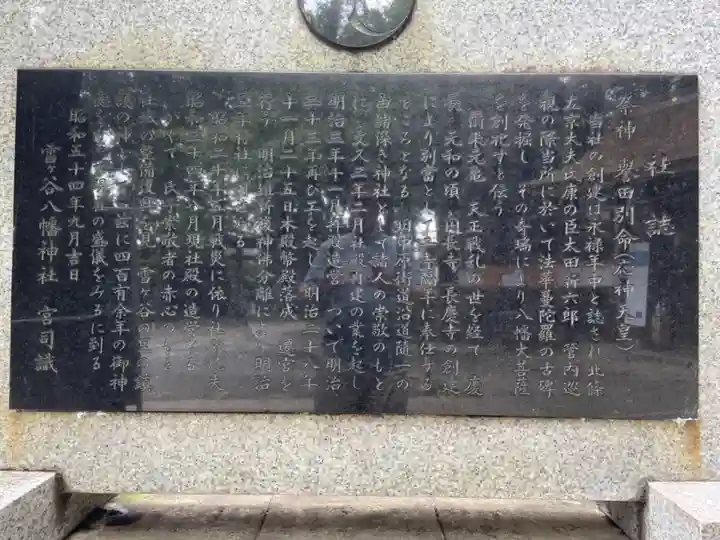 社誌
祭神 誉田別命(応神天皇)
当社の創建は永禄年中と誌され北條
左京大夫氏康の臣太田新六郎 管内巡
視の際当所に於いて法華曼陀羅の古碑
を発掘し その奇瑞により八幡大菩薩
を創祀すと伝う
開来元亀 天正戦乱の世を経て 慶
長 元和の頃 円長寺 長慶寺の創建
により別当として 両寺隔年に奉仕する
ところとなる 明 中原街道沿道随一の
由緒深き神社として諸人の崇敬のもと
に 文久三年二月社殿再建の業を起し
明治三年十一月 造営 ついで明治
三十三年再び工を起し 明治三十八年
十一月二十五日本殿幣殿落成 遷宮を
行う 明治維新後神佛分離により 明治
昭和二十 月戦災に依り社 失
昭和三十四年 月現社殿の造営
氏 崇敬者の赤心
の整備 雪ヶ谷
茲に四百有余年の御神
の盛儀をみるに到る
昭和五十四年九月吉日
雪ヶ谷八幡神社 宮司識